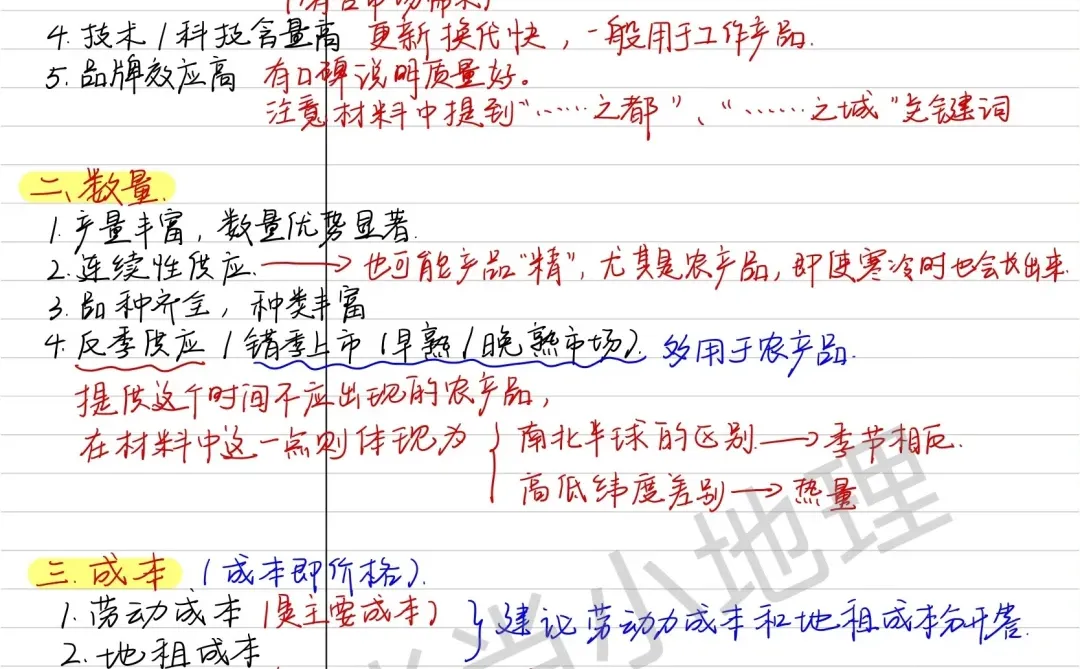 (符合市场需求)
4. 技术/科技含量高 更新换代快，一般用于工作产品.
5. 品牌效应高 有口碑说明质量好。
注意材料中提到“……之都”、“……之城”关键词
二、数量.
1. 产量丰富，数量优势显著.
2. 连续性供应. → 也可能产品“精”，尤其是农产品，即使寒冷时也会长出来.
3. 品种齐全，种类丰富
4. 反季供应/错季上市(早熟/晚熟市场). 多用于农产品.
提供这个时间不应出现的农产品，
在材料中这一点则体现为 { 南北半球的区别 → 季节相反.
高低纬度差别 → 热量
三. 成本 (成本即价格).
1. 劳动成本 (是主要成本) } 建议劳动力成本和地租成本分开答.
2. 地租成本
当小地理